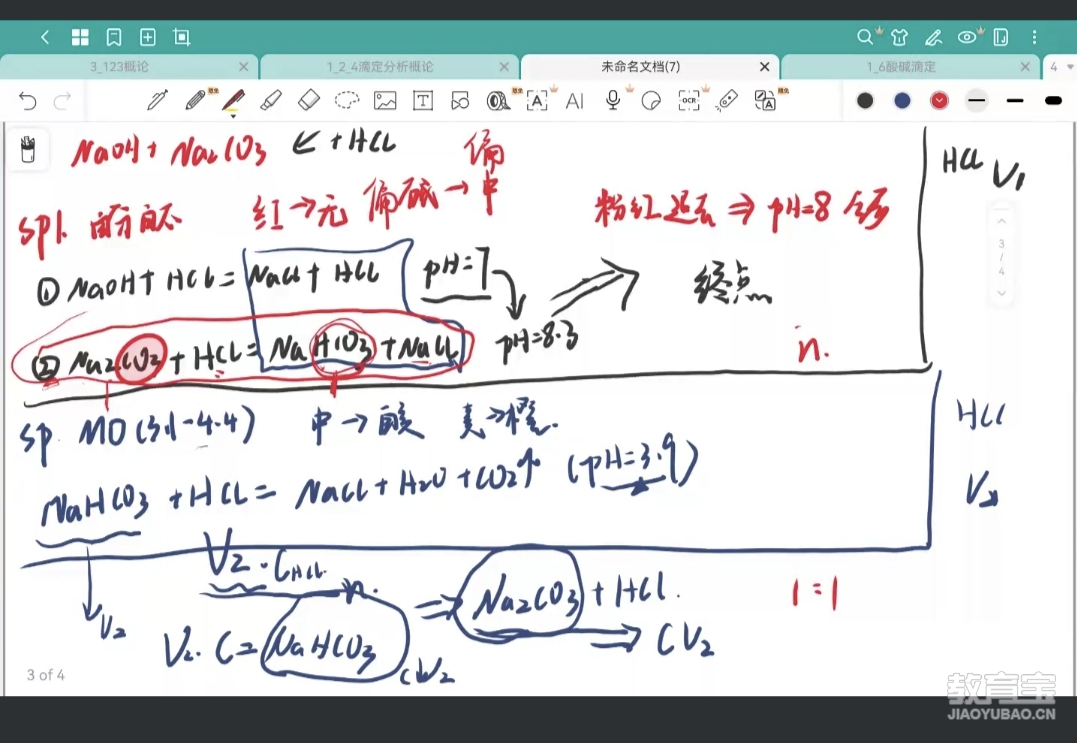 3_123概论
1_2_4滴定分析概论
未命名文档(7)
1_6酸碱滴定
4
NaOH + Na2CO3 ← +HCl
偏
sp1. 酚酞 红→无 偏碱→中
粉红退去 ⇒ pH=8
HCl V1
① NaOH + HCl = NaCl + HCl pH=7
终点
② Na2CO3 + HCl = NaHCO3 + NaCl pH=8.3
n.
sp. MO (3.1-4.4) 中→酸 黄→橙.
HCl
NaHCO3 + HCl = NaCl + H2O + CO2↑ (pH=3.9)
V2
V2·CHCl
n.
⇒ Na2CO3 + HCl.
1:1
V2
V2·C = NaHCO3
CV2
⇒ CV2
3 of 4
3
/
4
教育宝
JIAOYUBAO.CN